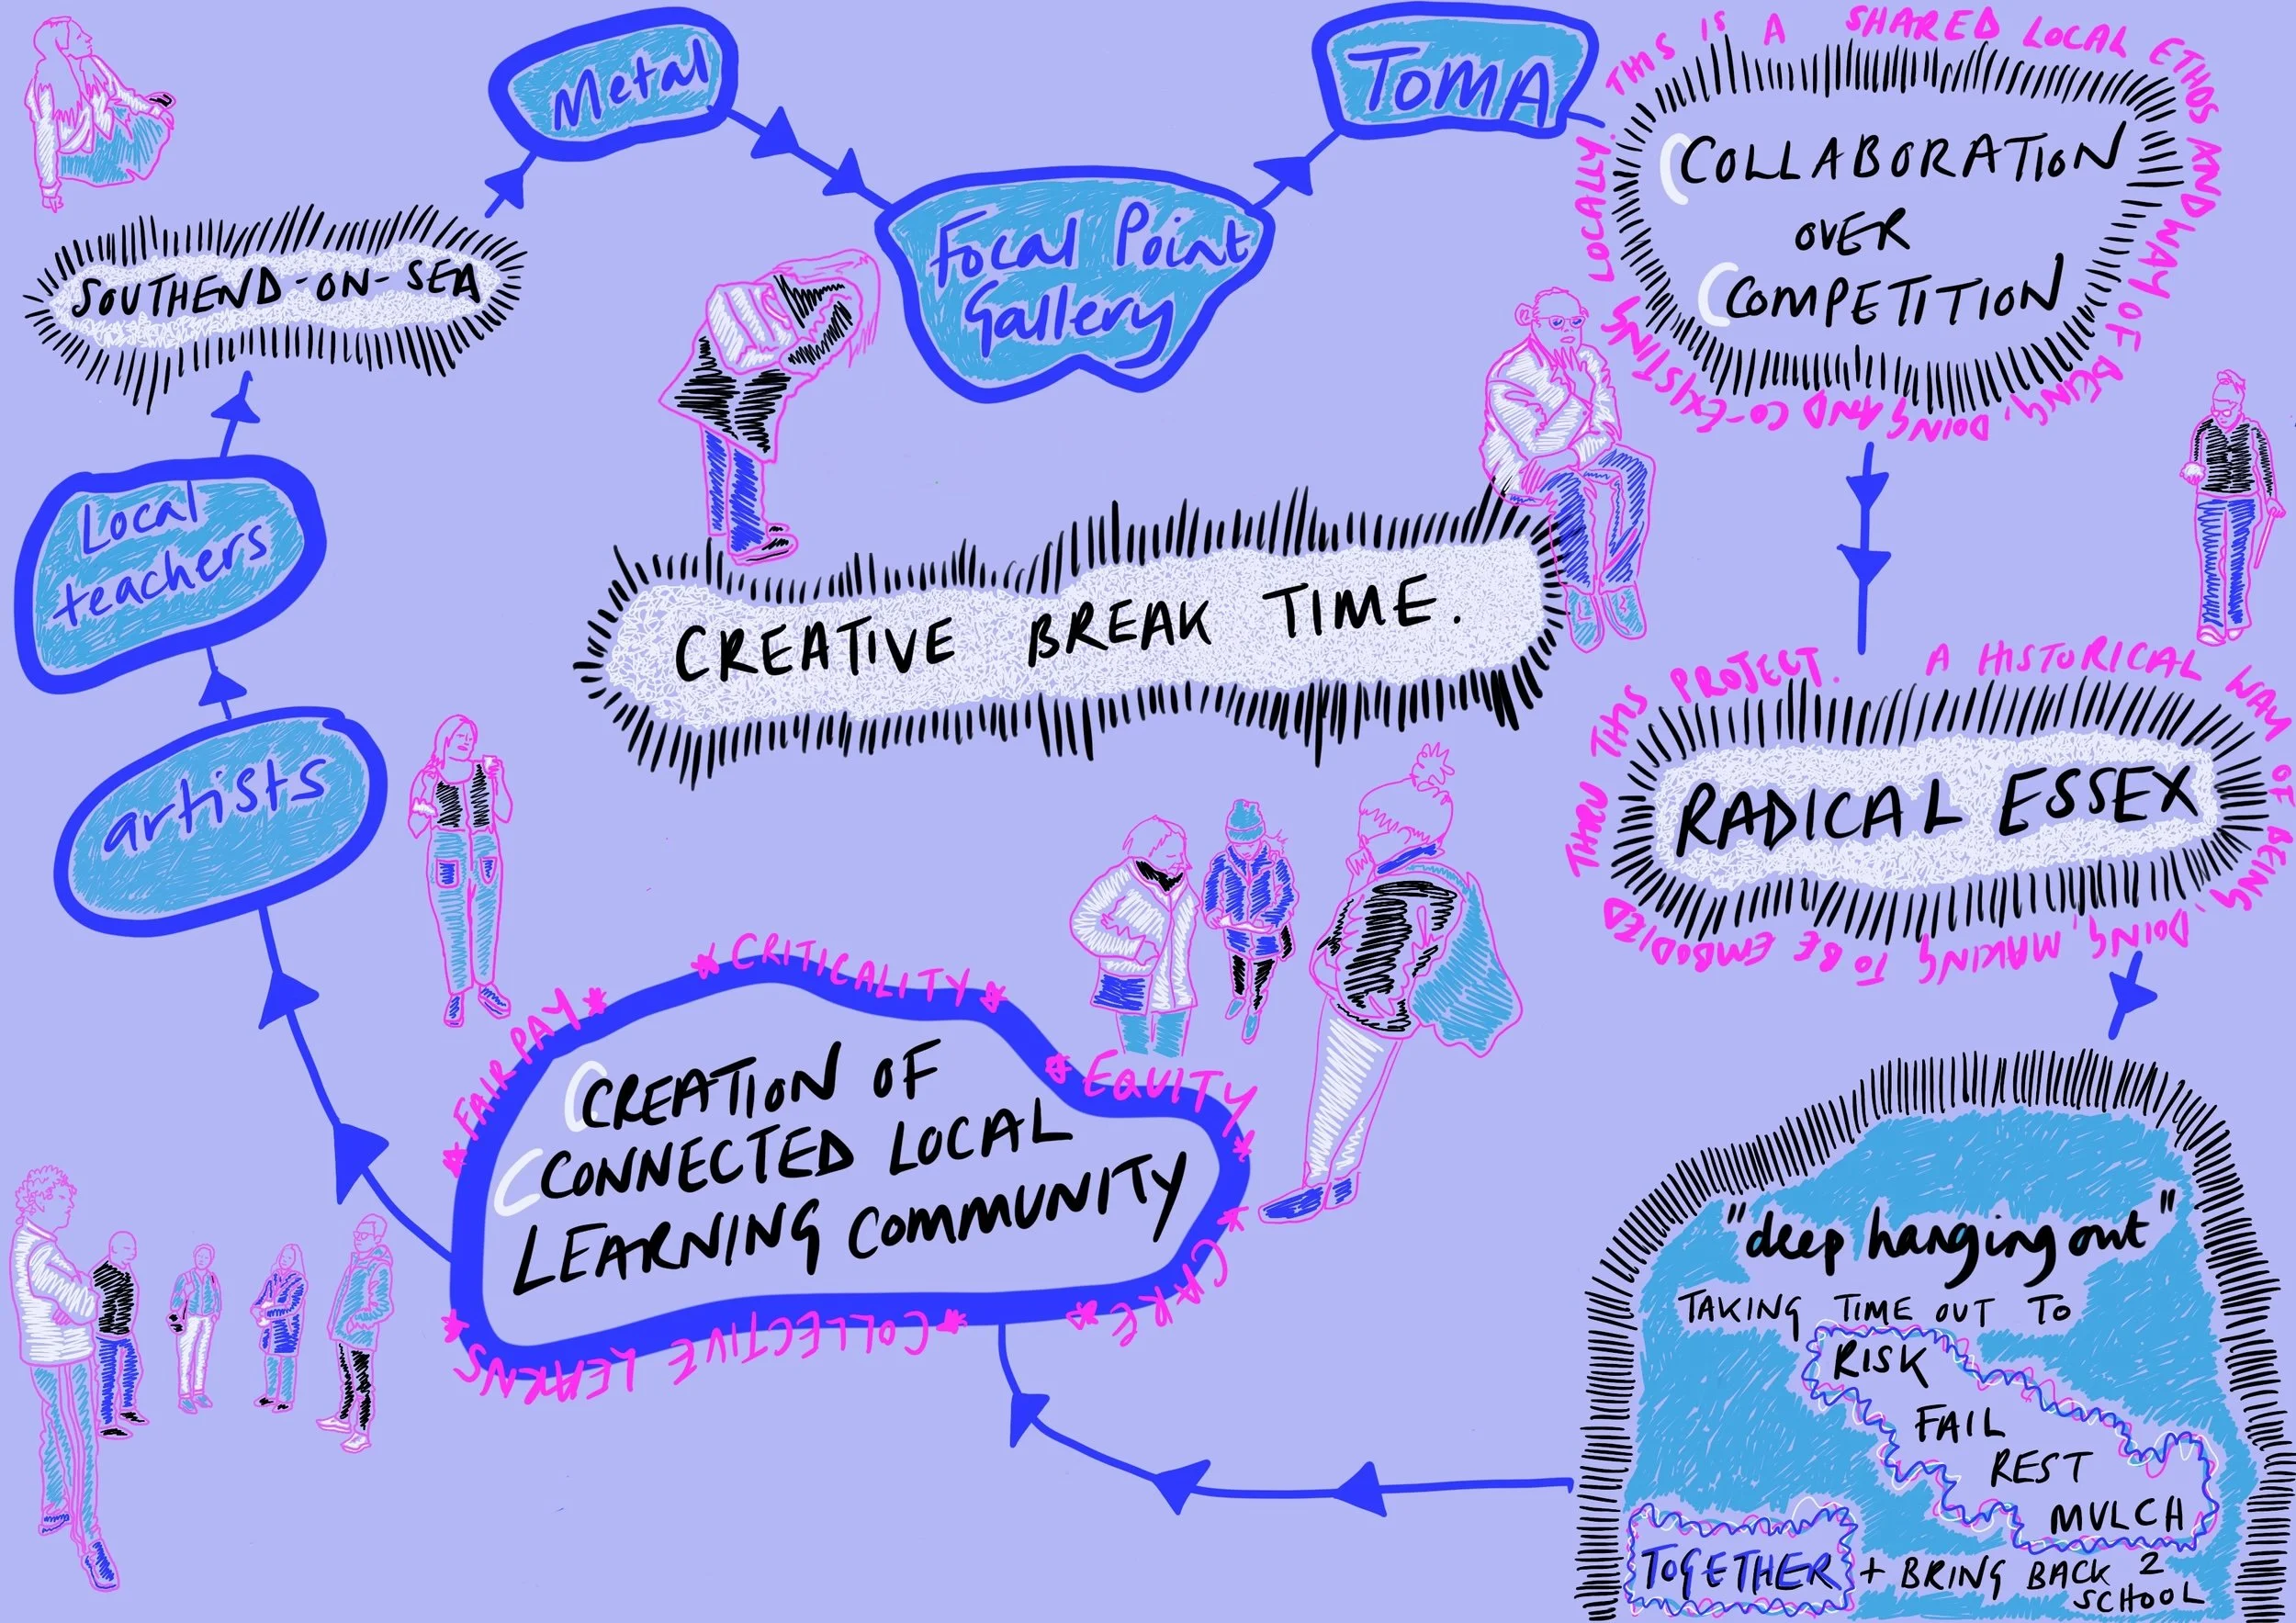 SOUTHEND-ON-SEA
Metal
Focal Point
Gallery
TOMA
THIS IS A SHARED LOCAL ETHOS AND WAY OF BEING, DOING AND CO-EXISTING LOCALLY.
COLLABORATION
OVER
COMPETITION
CREATIVE BREAK TIME.
A HISTORICAL WAY OF BEING, DOING, MAKING TO BE EMBODIED THRU THIS PROJECT.
RADICAL ESSEX
"deep hanging out"
TAKING TIME OUT TO
RISK
FAIL
REST
MULCH
TOGETHER + BRING BACK 2
SCHOOL
FAIR PAY
CRITICALITY
EQUITY
CARE
COLLECTIVE LEARNING
CREATION OF
CONNECTED LOCAL
LEARNING COMMUNITY
artists
Local
teachers